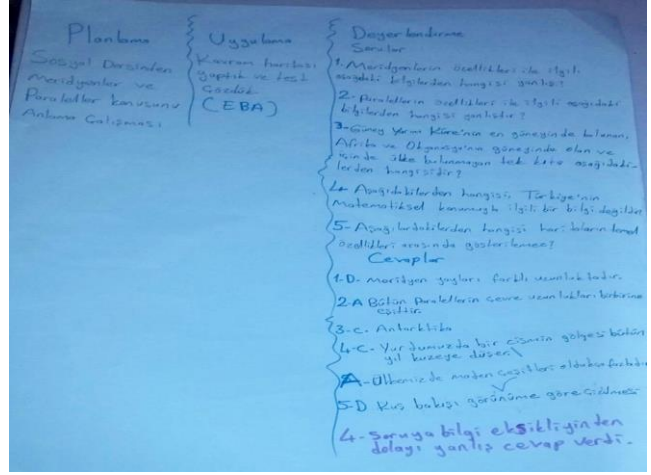 Planlama
Sosyal Dersinden
Meridyenler ve
Paraleller konusunu
Anlama Çalışması
Uygulama
Kavram haritası
yaptık ve test
çözdük
(EBA)
Değerlendirme
Sorular
1. Meridyenlerin özellikleri ile ilgili
aşağıdaki bilgilerden hangisi yanlış?
2- Paralellerin özellikleri ile ilgili aşağıdaki
bilgilerden hangisi yanlıştır?
3- Güney Yarım Küre'nin en güneyinde bulunan,
Afrika ve Okyanusya'nın güneyinde olan ve
içinde ülke bulunmayan tek kıta aşağıdaki-
lerden hangisidir?
4- Aşağıdakilerden hangisi, Türkiye'nin
Matematiksel konumuyla ilgili bir bilgi değildir
5- Aşağılardakilerden hangisi haritaların temel
özellikleri arasında gösterilemez?
Cevaplar
1-D- meridyen yayları farklı uzunluktadır.
2-A Bütün Paralellerin çevre uzunlukları birbirine
eşittir.
3-C- Antarktika
4-C- Yurdumuzda bir cismin gölgesi bütün
yıl kuzeye düşer.
A-Ülkemizde maden çeşitleri oldukça fazladır
5-D Kuş bakışı görünüme göre çizilmesi
4-Soruya bilgi eksikliğinden
dolayı yanlış cevap verdi.